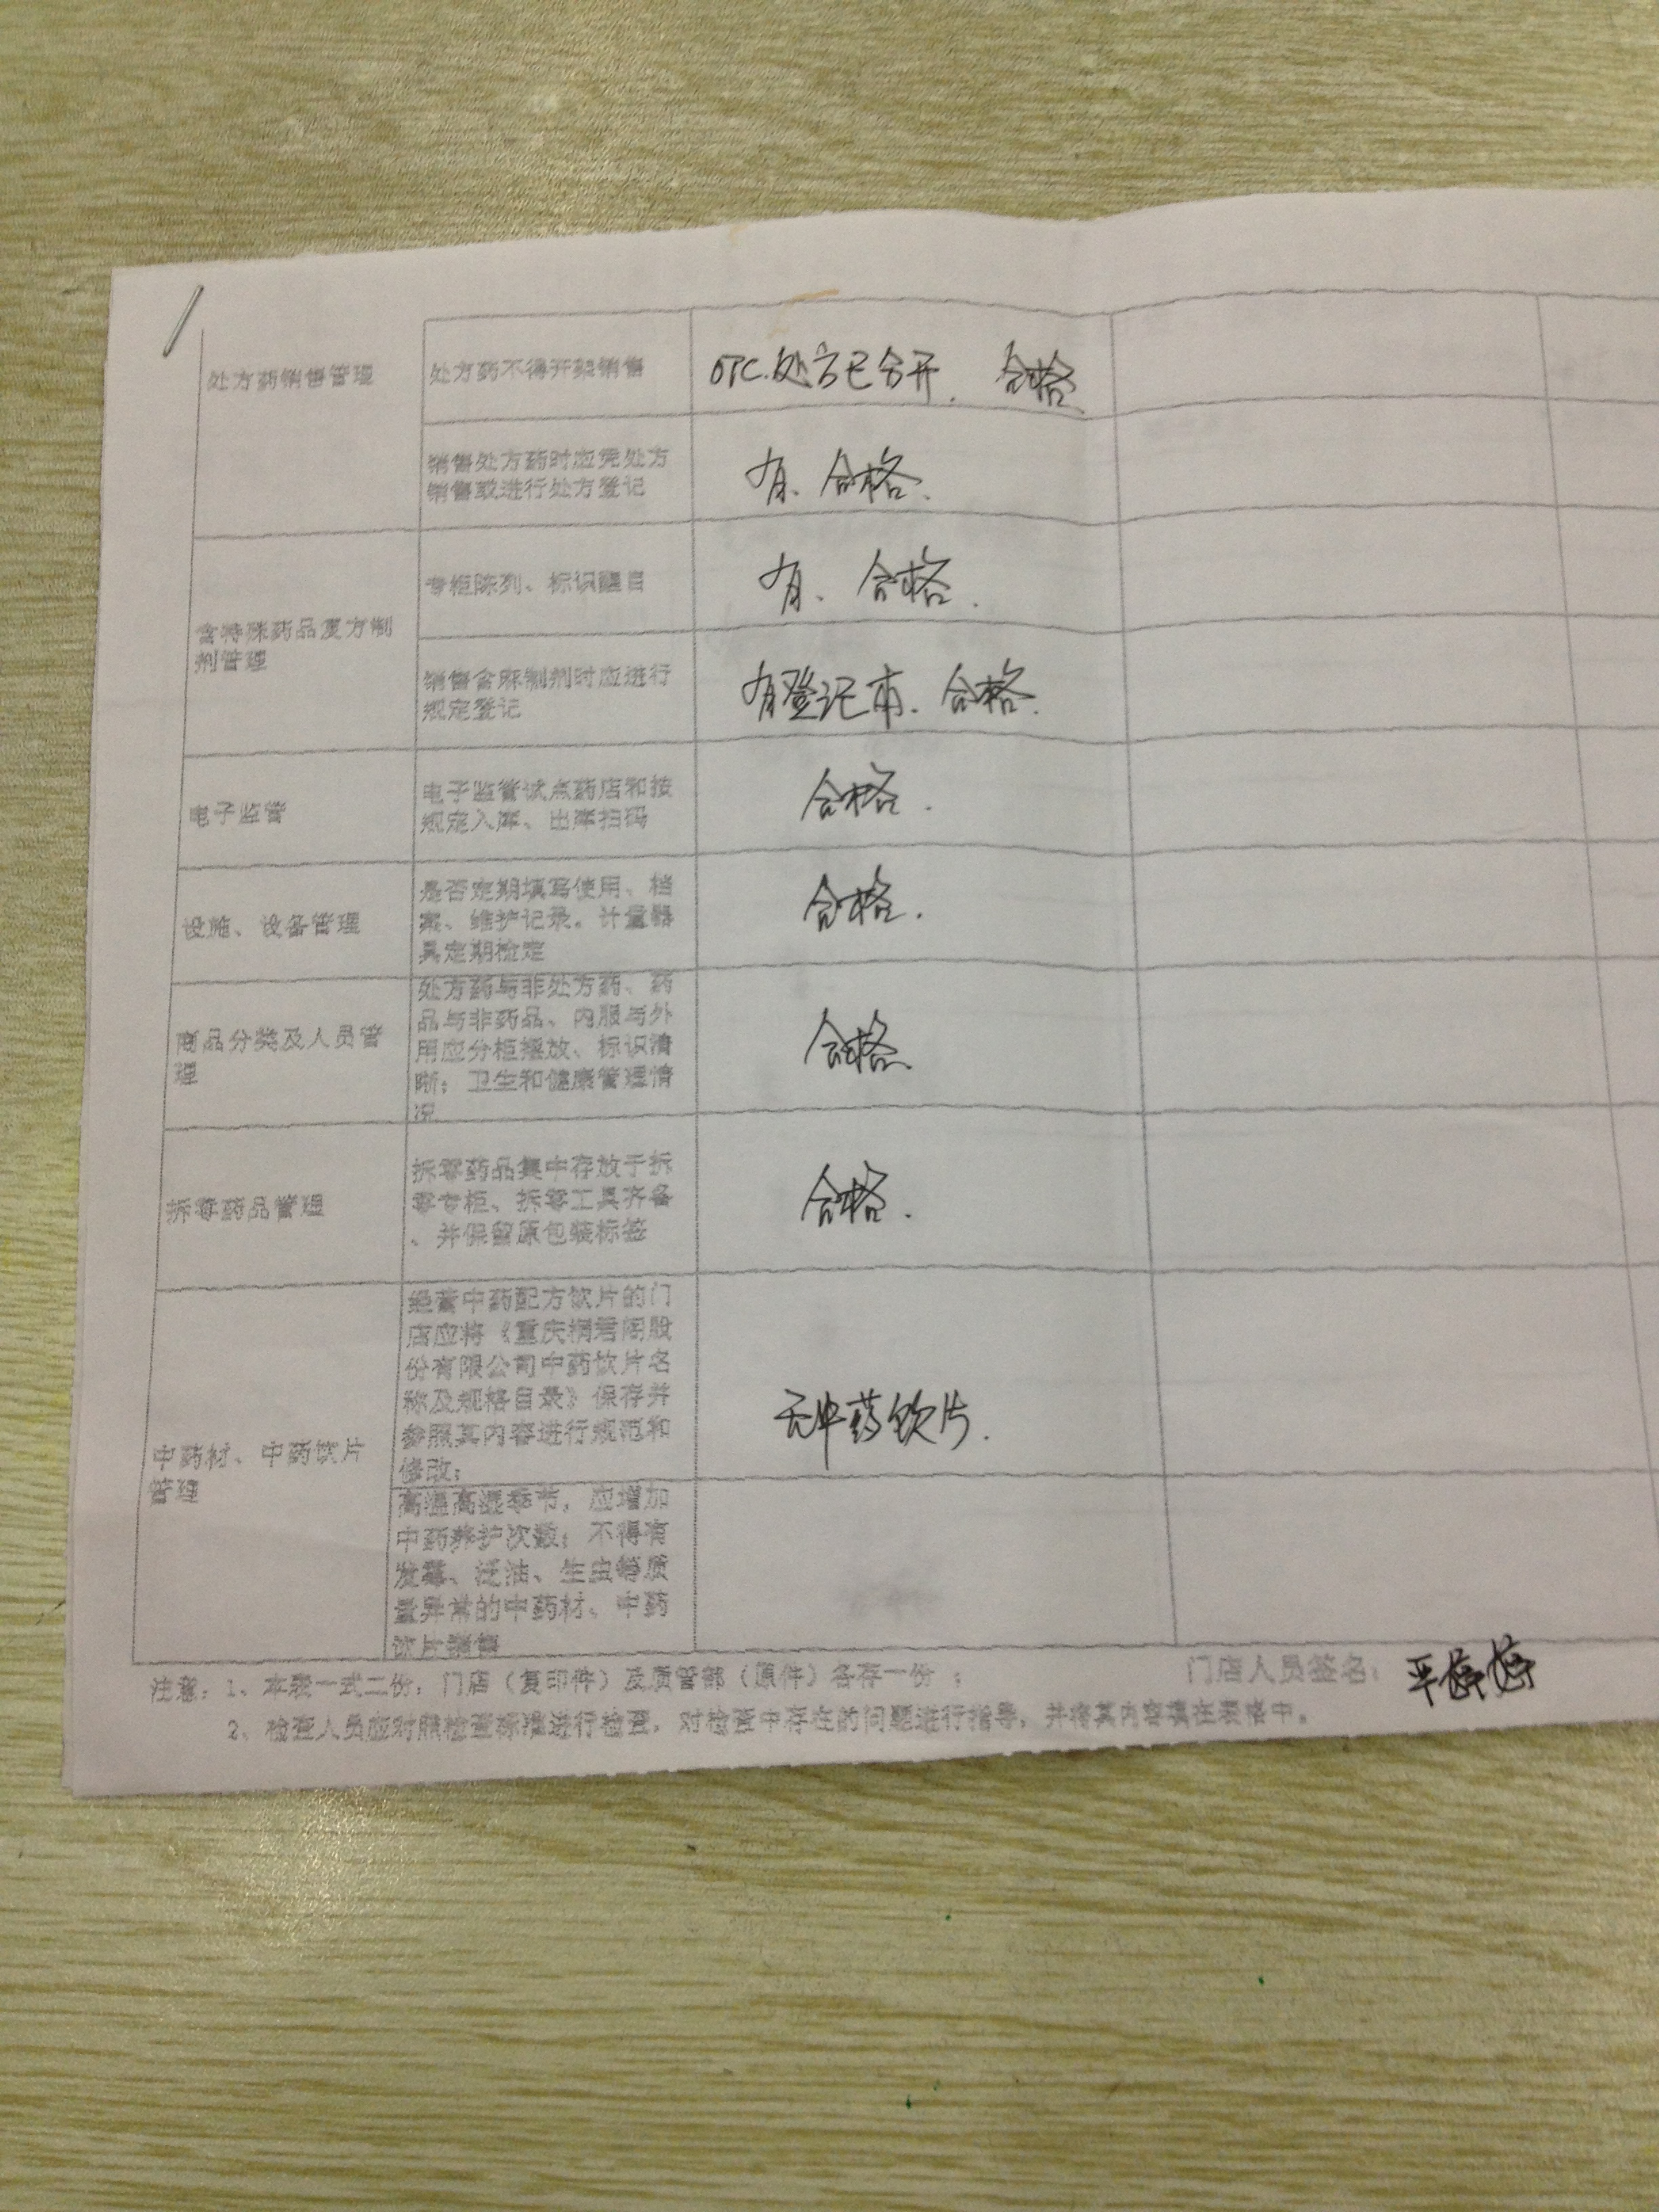 处方药销售管理
处方药不得开架销售
OTC.处方已分开. 合格
销售处方药时应凭处方
销售或进行处方登记
有. 合格.
含特殊药品复方制
剂管理
专柜陈列、标识醒目
有. 合格.
销售含麻制剂时应进行
规定登记
有登记本. 合格.
电子监管
电子监管试点药店和按
规定入库、出库扫码
合格.
设施、设备管理
是否定期填写使用、档
案、维护记录。计量器
具定期检定
合格.
商品分类及人员管
理
处方药与非处方药、药
品与非药品、内服与外
用应分柜摆放、标识清
晰；卫生和健康管理情
况
合格.
拆零药品管理
拆零药品集中存放于拆
零专柜、拆零工具齐备
、并保留原包装标签
合格.
中药材、中药饮片
管理
经营中药配方饮片的门
店应将《重庆桐君阁股
份有限公司中药饮片名
称及规格目录》保存并
参照其内容进行规范和
修改；
无中药饮片.
高温高湿季节，应增加
中药养护次数；不得有
发霉、泛油、生虫等质
量异常的中药材、中药
饮片销售
注意：1、本表一式二份，门店（复印件）及质管部（原件）各存一份；
门店人员签名：
2、检查人员应对照检查标准进行检查，对检查中存在的问题进行指导，并将其内容填在表格中。